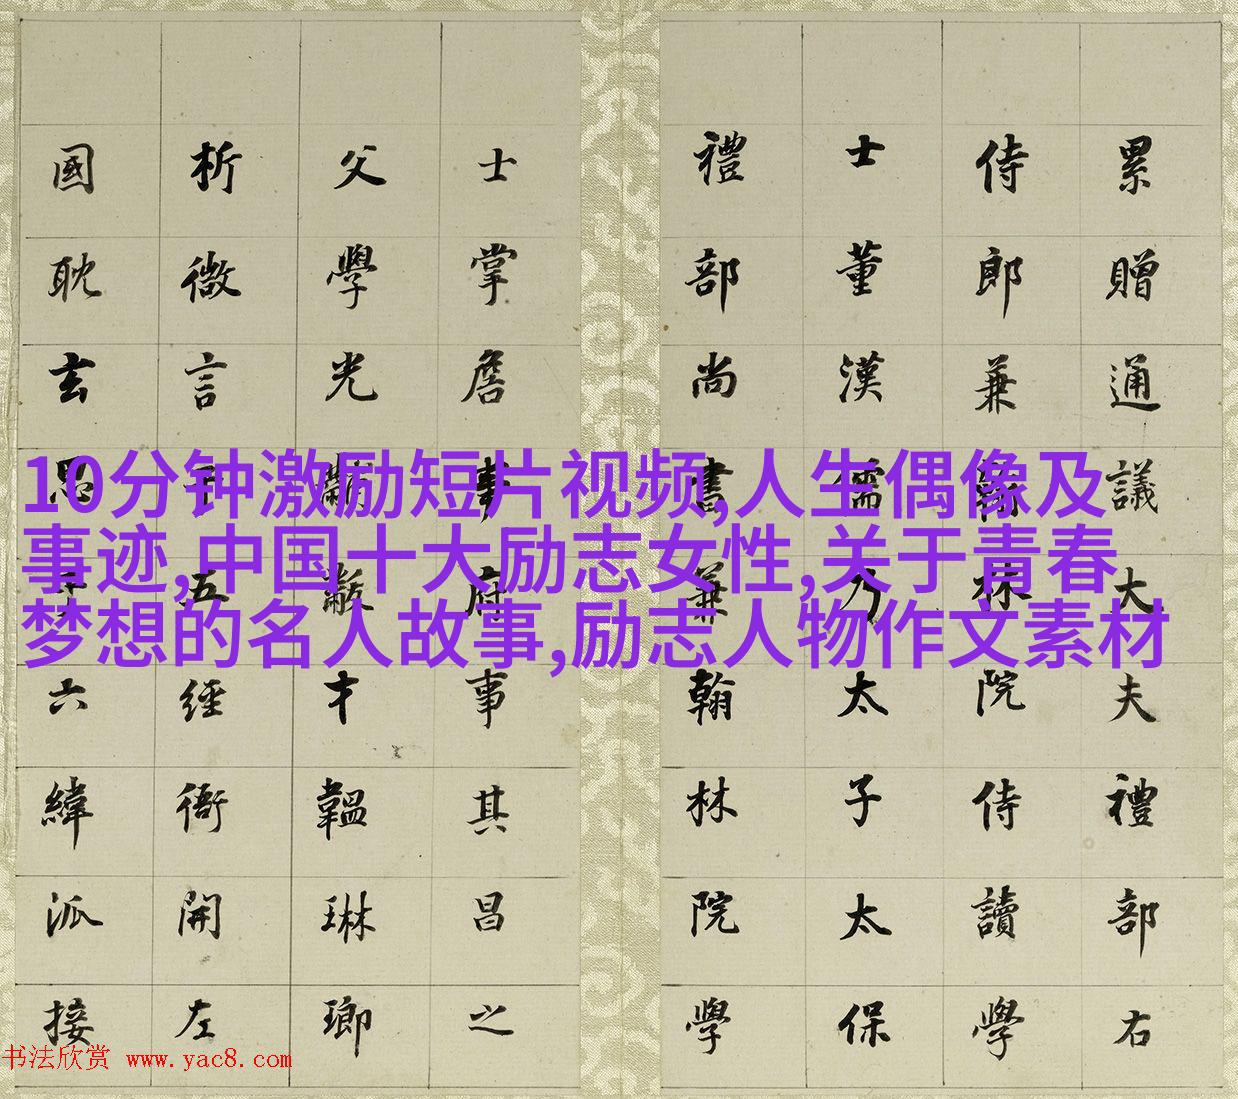 累贈通議大夫禮部右
侍郎兼翰林院侍讀學
士董漢儒乃太子太保
禮部尚書兼翰林院學
士掌詹事府事其昌之
父學光黼黻才韞琳瑯
析微言于五經衙開左
國耽玄思于六緯派接
10分钟激励短片视频,人生偶像及
事迹,中国十大励志女性,关于青春
梦想的名人故事,励志人物作文素材
书法欣赏 www.yac8.com